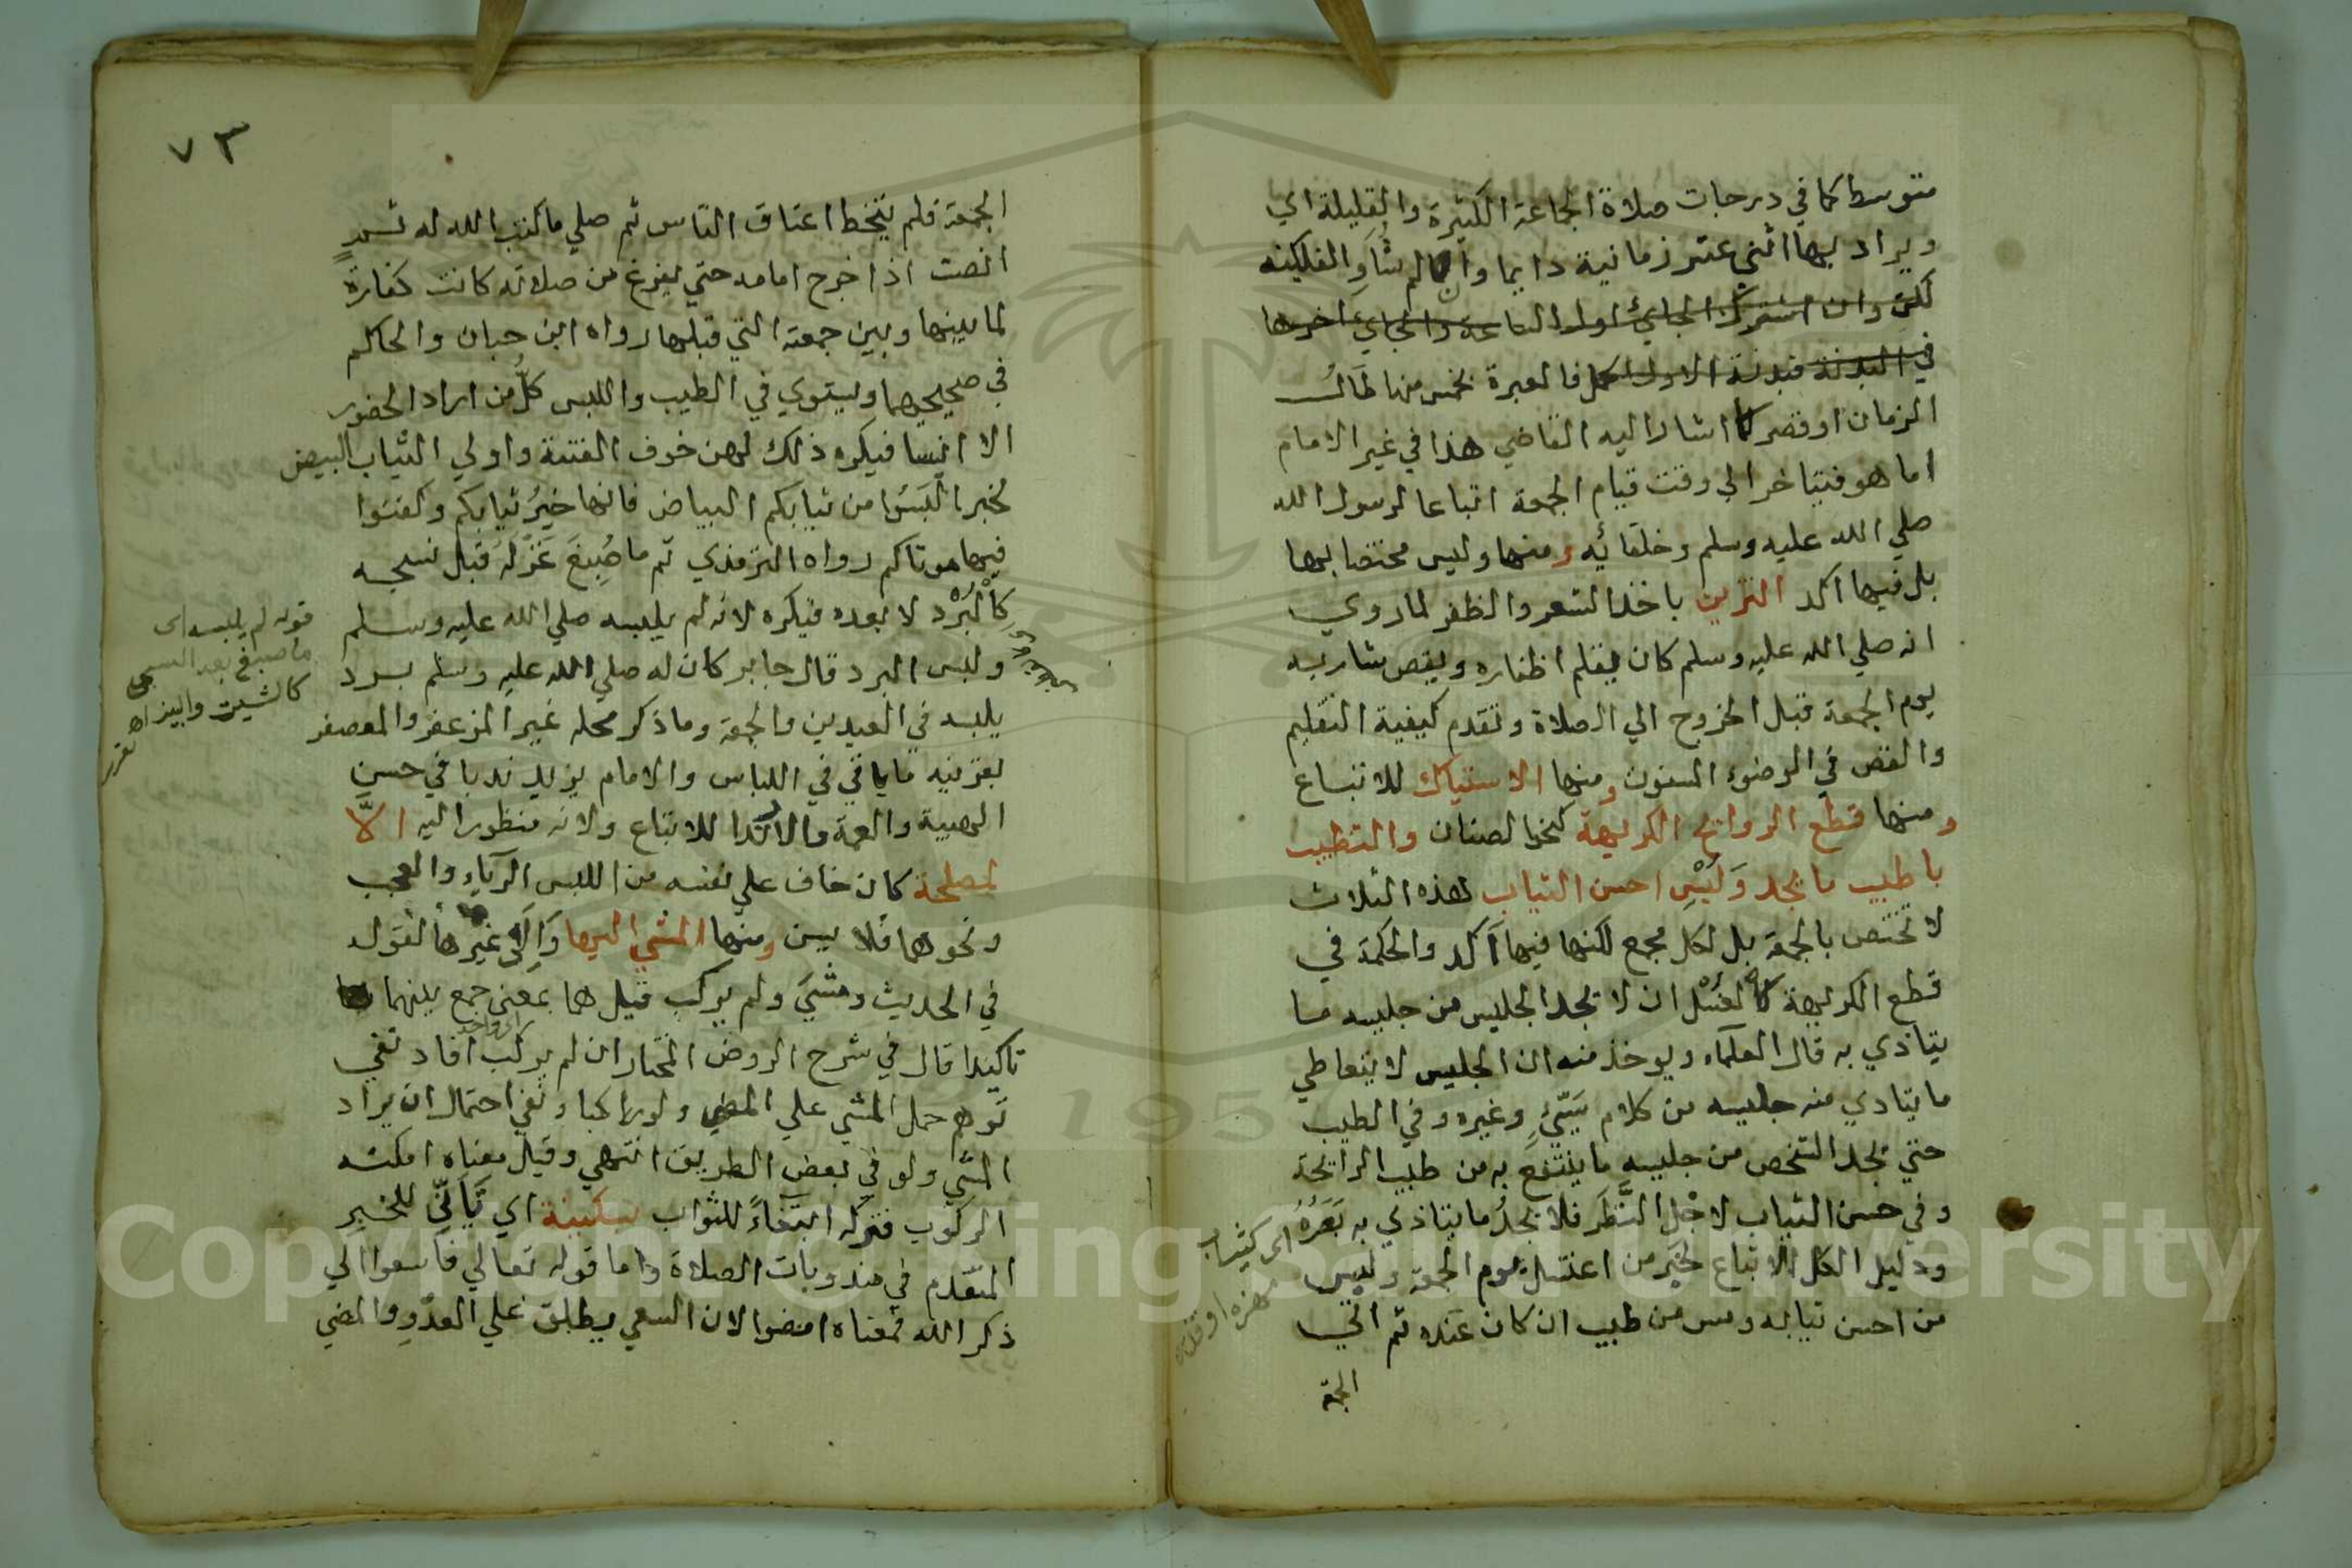 متوسط كما في درجات صلاة الجماعة الكثيرة والقليلة اي
ويراد بها اثني عشر زمانية دايما وان لم تساو الفلكية
لكن وان اشترك الجائ اول الساعة والجاي اخرها
في البدنة فبدنة الاول اكمل فالعبرة بخمس منها طال
الزمان او قصر كما اشار اليه القاضي هذا في غير الامام
اما هو فيتاخر الي وقت قيام الجمعة اتباعا لرسول الله
صلي الله عليه وسلم وخلفائه ومنها وليس مختصا بها
بل فيها اكد التزين باخذ الشعر والظفر لما روي
انه صلي الله عليه وسلم كان يقلم اظفاره ويقص شاربه
يوم الجمعة قبل الخروج الي الصلاة وتقدم كيفية التقليم
والقص في الوضوء المسنون ومنها الاستياك للاتباع
ومنها قطع الروائح الكريهة كنحو الصنان والتطيب
باطيب ما يجد ولبس احسن الثياب لهذه الثلاث
لا تختص بالجمعة بل لكل مجمع لكنها فيها آكد والحكمة في
قطع الكريهة كالغسل ان لا يجد الجليس من جليسه ما
يتاذي به قال العلماء ويوخذ منه ان الجليس لا يتعاطي
ما يتاذي منه جليسه من كلام سيئ وغيره وفي الطيب
حتي يجد الشخص من جليسه ما ينتفع به من طيب الرائحة
وفي حسن الثياب لاجل النظر فلا يجد ما يتاذي به بصره
ودليل الكل الاتباع لخبر من اغتسل يوم الجمعة ولبس
من احسن ثيابه ومس من طيب ان كان عنده ثم اتي
الجمعة
٧٣
الجمعة فلم يتخط اعناق الناس ثم صلي ما كتب الله له ثم
انصت اذا خرج امامه حتي يفرغ من صلاته كانت كفارة
لما بينها وبين جمعة التي قبلها رواه ابن حبان والحاكم
في صحيحهما ويستوي في الطيب واللبس كل من اراد الحضور
الا النسا فيكره ذلك لهن خوف الفتنة واولي الثياب البيض
لخبر البسوا من ثيابكم البياض فانها خير ثيابكم وكفنوا
فيها موتاكم رواه الترمذي ثم ما صبغ غزله قبل نسجه
كالبرد لا بعده فيكره لانه لم يلبسه صلي الله عليه وسلم
ولبس البرد قال جابر كان له صلي الله عليه وسلم برد
يلبسه في العيدين والجمعة وما ذكر محله غير المزعفر والمعصفر
بقرينة ما ياتي في اللباس والامام يزيد ندبا في حسن
الهيية والعمة والارتدا للاتباع ولانه منظور اليه الا
لمصلحة كان خاف علي نفسه من اللبس الرياء والعجب
ونحوهما فلا يسن ومنها المشي اليها والي غيرها لقوله
في الحديث ومشي ولم يركب قيل هما بمعني جمع بينهما
تاكيدا قال في شرح الروض المختار ان لم يركب افاد نفي
توهم حمل المشي علي المضي ولو راكبا ونفي احتمال ان يراد
المشي ولو في بعض الطريق انتهي وقيل معناه امكنه
الركوب فتركه ابتغاءً للثواب بسكينة اي تأني للخبر
المتقدم في مندوبات الصلاة واما قوله تعالي فاسعوا الي
ذكر الله فمعناه امضوا لان السعي يطلق علي العدو والمضي
قوله لم يلبسه اي
ما صبغ بعد النسج
كالشيت
Copyright © King Saud University
195